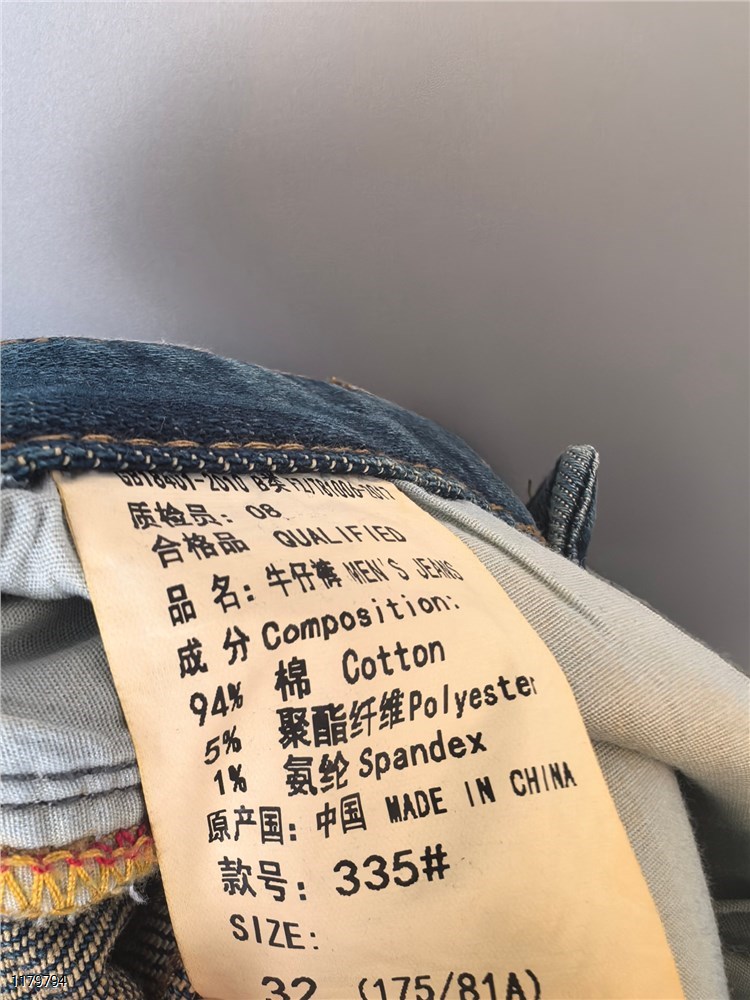 GB18401-2010 B类 FZ/T81006-2017
质检员: 08
合格品 QUALIFIED
品 名: 牛仔裤 MEN'S JEANS
成 分 Composition:
94% 棉 Cotton
5% 聚酯纤维 Polyester
1% 氨纶 Spandex
原产国: 中国 MADE IN CHINA
款号: 335#
SIZE:
32 (175/81A)
1179794